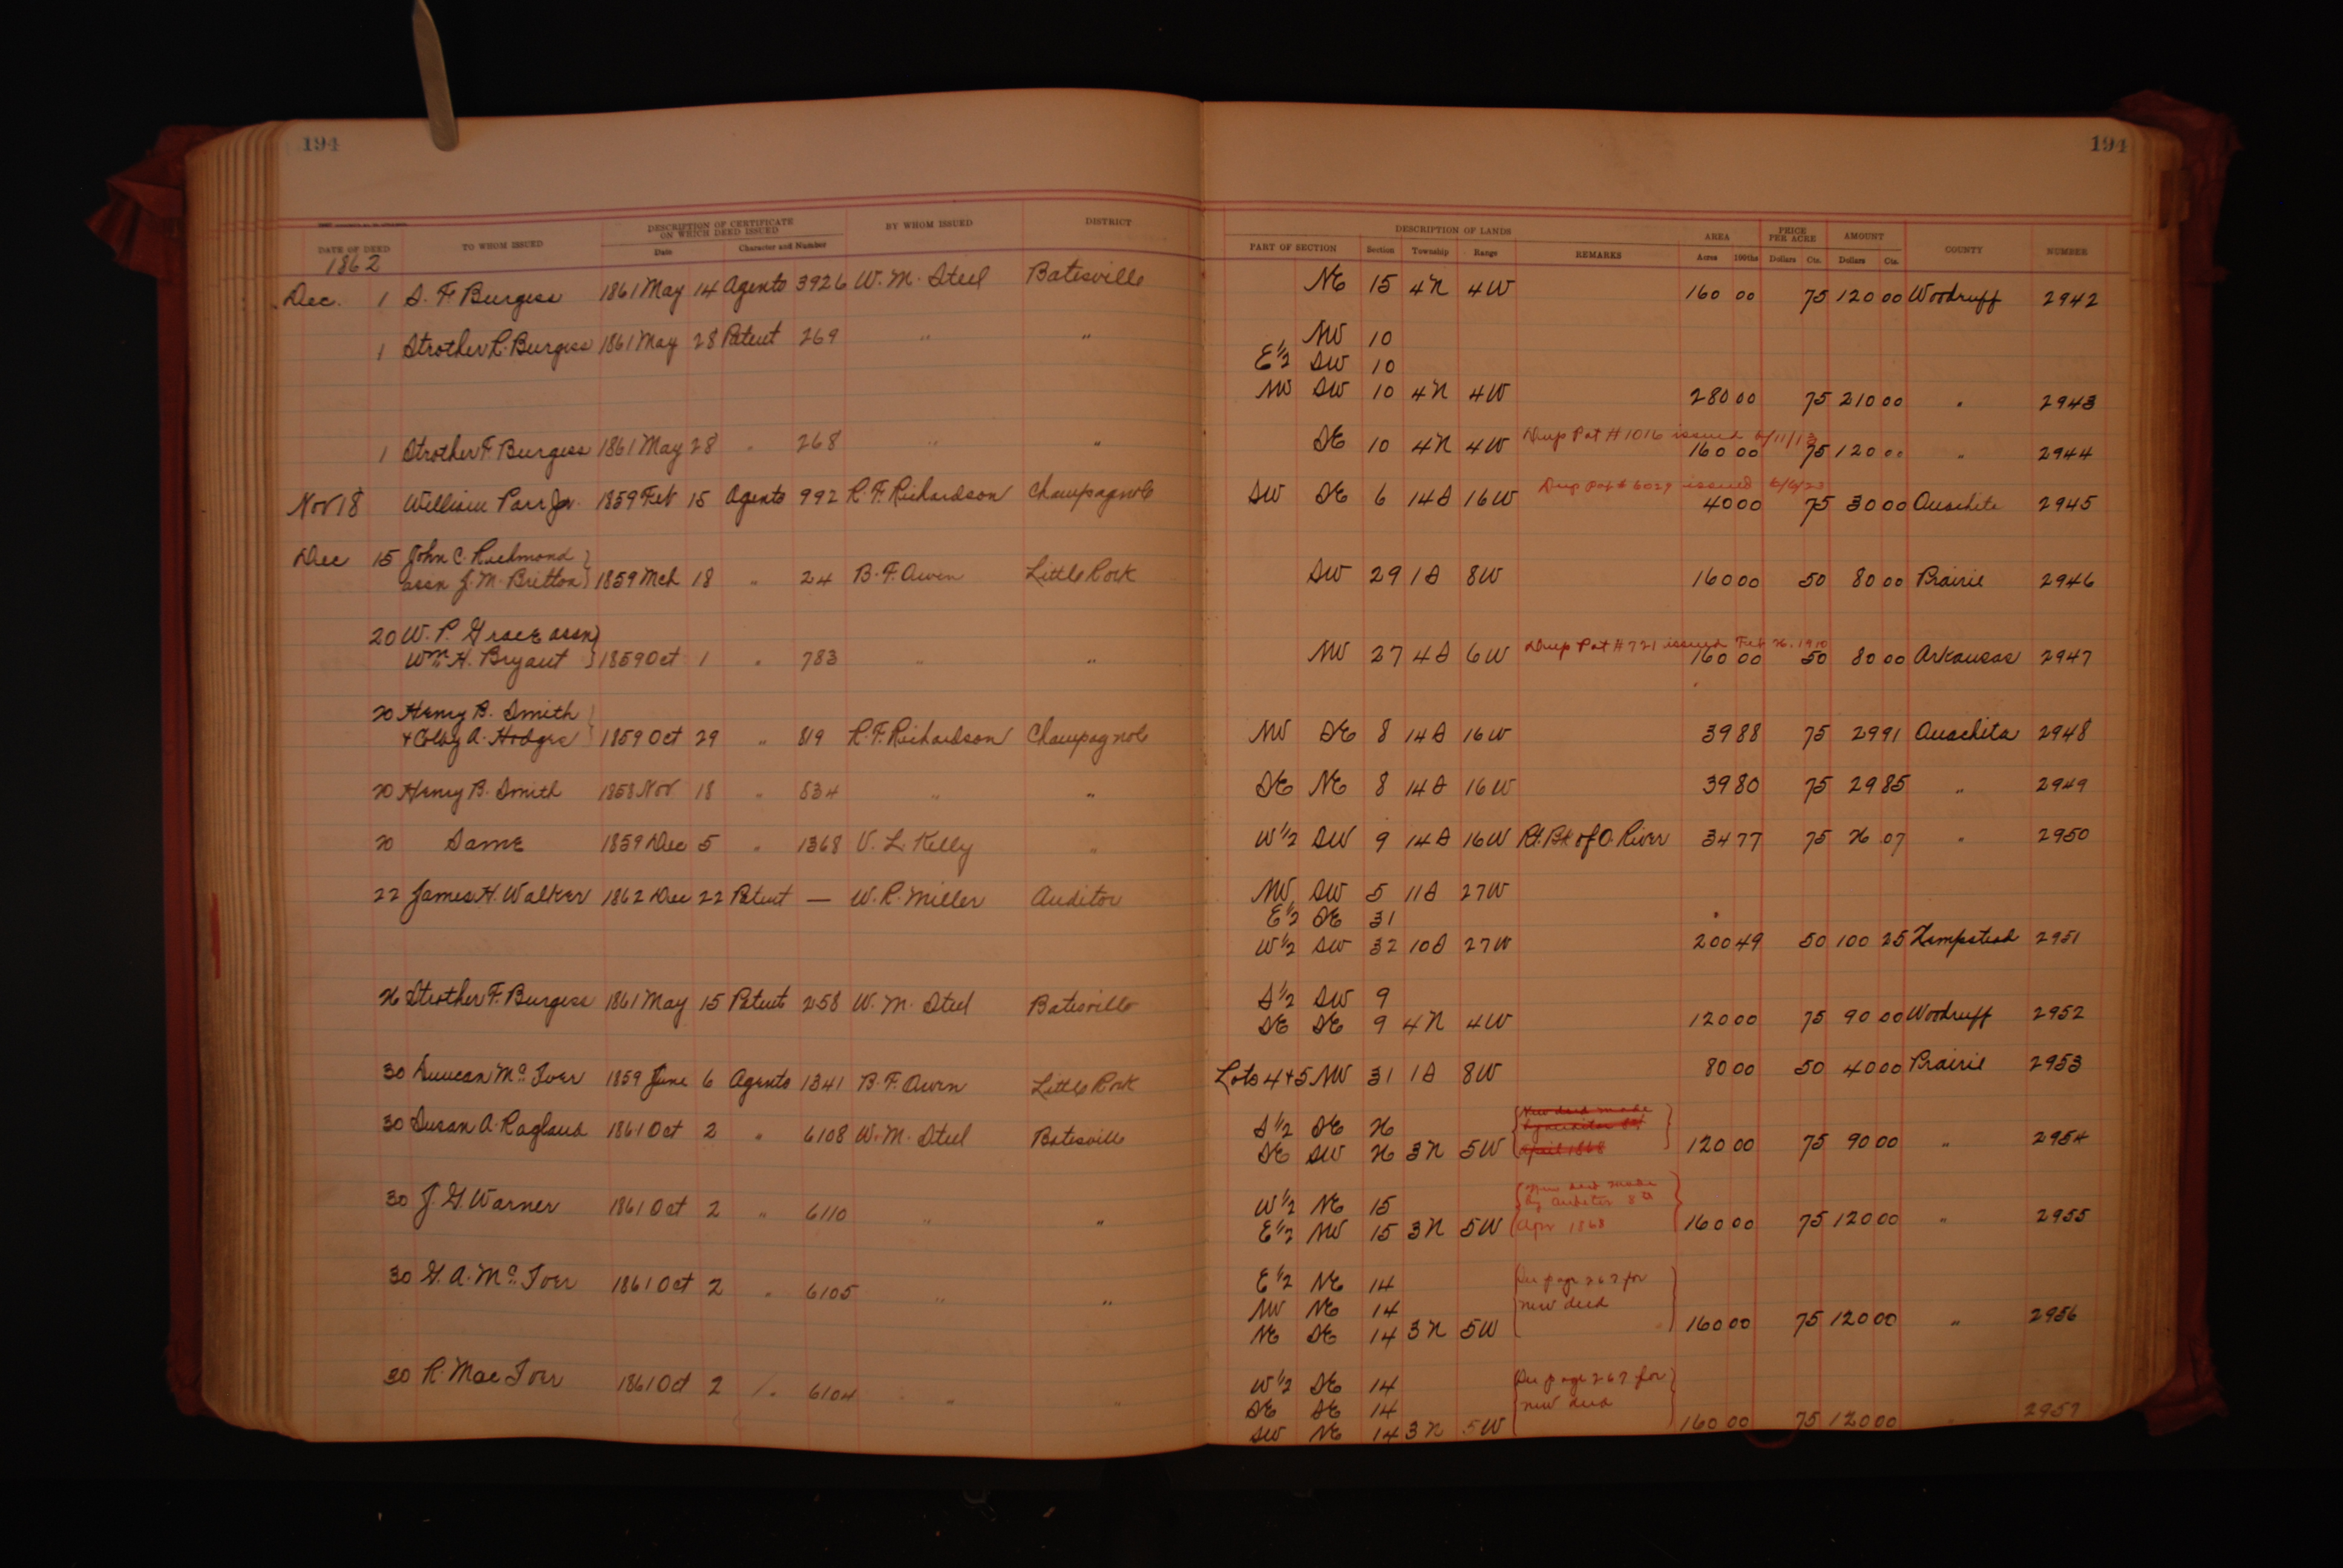 194
194
DESCRIPTION OF CERTIFICATE ON WHICH DEED ISSUED BY WHOM ISSUED DISTRICT DESCRIPTION OF LANDS AREA PRICE PER ACRE AMOUNT
DATE OF DEED TO WHOM ISSUED Date Character and Number PART OF SECTION Section Township Range REMARKS Acres 100ths Dollars Cts. Dollars Cts. COUNTY NUMBER
1862
Dec. 1 S. F. Burgess 1861 May 14 Agents 3926 W. M. Steel Batesville NE 15 4N 4W 160 00 75 120 00 Woodruff 2942
1 Strother R. Burgess 1861 May 28 Patent 269 " " NW 10
E½ SW 10
NW SW 10 4N 4W 280 00 75 210 00 " 2943
1 Strother F Burgess 1861 May 28 " 268 " " SE 10 4N 4W Dup Pat #1016 issued 6/11/13 160 00 75 120 00 " 2944
Nov 18 William Parr Jr. 1859 Feb 15 Agents 992 R. F. Richardson Champagnole SW SE 6 14S 16W Dup Pat # 6029 issued 6/6/23 40 00 75 30 00 Ouachita 2945
Dec 15 John C. Richmond
assn J. M. Britton 1859 Mch 18 " 24 B. F. Owen Little Rock SW 29 1S 8W 160 00 50 80 00 Prairie 2946
20 W. P. Grace assn
Wm. H. Bryant 1859 Oct 1 " 783 " " NW 27 4S 6W Dup Pat #721 issued Feb 26. 1910 160 00 50 80 00 Arkansas 2947
20 Henry B. Smith
+ Colby A. Hodges 1859 Oct 29 " 819 R. F. Richardson Champagnole NW SE 8 14S 16W 39 88 75 29 91 Ouachita 2948
20 Henry B. Smith 1858 Nov 18 " 834 " " SE NE 8 14S 16W 39 80 75 29 85 " 2949
20 Same 1859 Dec 5 " 1368 V. L. Kelly " W½ SW 9 14S 16W Rt. Bk of O. River 34 77 75 26 07 " 2950
22 James H. Walker 1862 Dec 22 Patent — W. R. Miller Auditor NW SW 5 11S 27W
E½ SE 31
W½ SW 32 10S 27W 200 49 50 100 25 Hempstead 2951
26 Strother F. Burgess 1861 May 15 Patent 258 W. M. Steel Batesville S½ SW 9
SE SE 9 4N 4W 120 00 75 90 00 Woodruff 2952
30 Duncan Mc Iver 1859 June 6 Agents 1341 B. F. Owen Little Rock Lots 4+5 NW 31 1S 8W 80 00 50 40 00 Prairie 2953
30 Susan A. Ragland 1861 Oct 2 " 6108 W. M. Steel Batesville S½ SE 26 New deed made
SE SW 26 3N 5W April 1868 120 00 75 90 00 " 2954
30 J. G. Warner 1861 Oct 2 " 6110 " " W½ NE 15 New deed made by Auditor 8th
E½ NW 15 3N 5W Apr 1868 160 00 75 120 00 " 2955
30 G. A. Mc Iver 1861 Oct 2 " 6105 " " E½ NE 14 See page 267 for
NW NE 14 new deed
NE SE 14 3N 5W 160 00 75 120 00 " 2956
30 R. Mac Iver 1861 Oct 2 " 6104 " " W½ SE 14 See page 267 for
SE SE 14 new deed
SW NE 14 3N 5W 160 00 75 120 00 2957